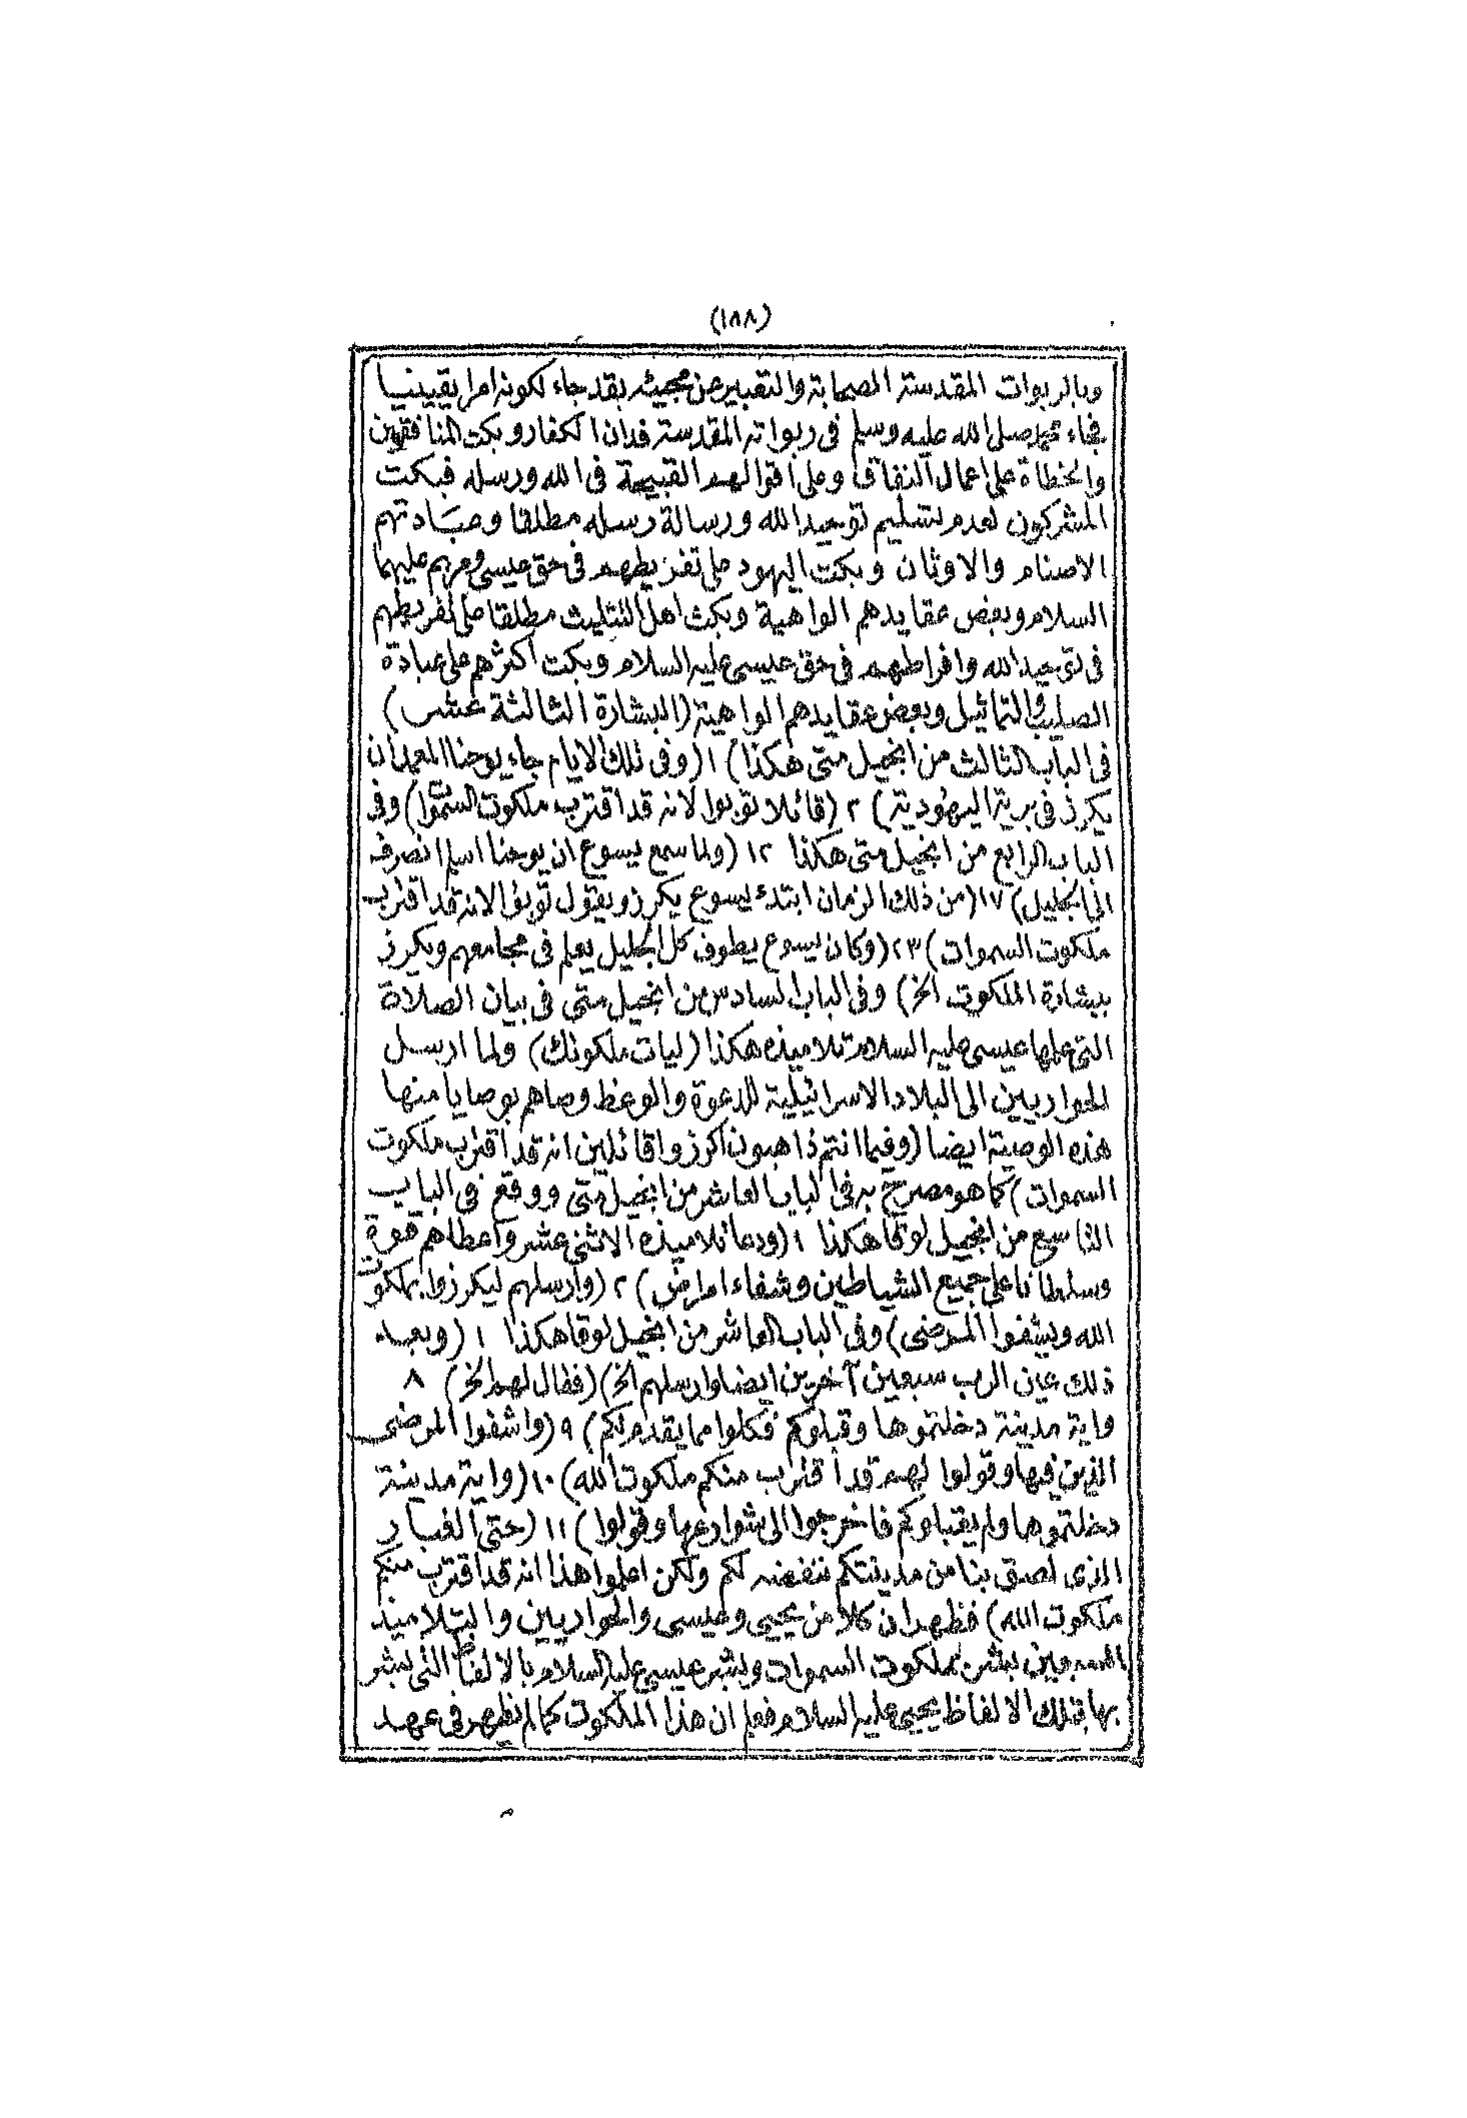 (١٨٨)
وبالربوات المقدسة الصحابة والتعبير عن مجيئه بقد جاء لكونه امرا يقينيا
فجاء محمد صلى الله عليه وسلم فى ربواته المقدسة فدان الكفار وبكت المنافقين
والخطاة على اعمال النفاق وعلى اقوالهم القبيحة فى الله ورسله فبكت
المشركون لعدم تسليم توحيد الله ورسالة رسله مطلقا وعبادتهم
الاصنام والاوثان وبكت اليهود على تفريطهم فى حق عيسى ومريم عليهما
السلام وبعض عقايدهم الواهية وبكت اهل التثليث مطلقا على تفريطهم
فى توحيد الله وافراطهم فى حق عيسى عليه السلام وبكت اكثرهم على عبادة
الصليب والتماثيل وبعض عقايدهم الواهية (البشارة الثالثة عشر)
فى الباب الثالث من انجيل متى هكذا) ١ (وفى تلك الايام جاء يوحنا المعمدان
يكرز فى برية اليهودية) ٢ (قائلا توبوا لانه قد اقترب ملكوت السموات) وفى
الباب الرابع من انجيل متى هكذا ١٢ (ولما سمع يسوع ان يوحنا اسلم انصرف
الى الجليل) ١٧ (من ذلك الزمان ابتدء يسوع يكرز ويقول توبوا لانه قد اقترب
ملكوت السموات) ٢٣ (وكان يسوع يطوف كل الجليل يعلم فى مجامعهم ويكرز
ببشارة الملكوت الخ) وفى الباب السادس من انجيل متى فى بيان الصلاة
التى علمها عيسى عليه السلام تلاميذه هكذا (ليات ملكوتك) ولما ارسل
الحواريين الى البلاد الاسرائيلية للدعوة والوعظ وصاهم بوصايا منها
هذه الوصية ايضا (وفيما انتم ذاهبون اكرزوا قائلين انه قد اقترب ملكوت
السموات) كما هو مصرح به فى الباب العاشر من انجيل متى ووقع فى الباب
التاسع من انجيل لوقا هكذا ١ (ودعا تلاميذه الاثنى عشر واعطاهم قوة
وسلطانا على جميع الشياطين وشفاء امراض) ٢ (وارسلهم ليكرزوا بملكوت
الله ويشفوا المرضى) وفى الباب العاشر من انجيل لوقا هكذا ١ (وبعد
ذلك عين الرب سبعين آخرين ايضا وارسلهم الخ) (فقال لهم الخ) ٨
واية مدينة دخلتموها وقبلوكم فكلوا مما يقدم لكم) ٩ (واشفوا المرضى
الذين فيها وقولوا لهم قد اقترب منكم ملكوت الله) ١٠ (واية مدينة
دخلتموها ولم يقبلوكم فاخرجوا الى شوارعها وقولوا) ١١ (حتى الغبار
الذى لصق بنا من مدينتكم ننفضه لكم ولكن اعلموا هذا انه قد اقترب منكم
ملكوت الله) فظهر ان كلا من يحيى وعيسى والحواريين والتلاميذ
السبعين بشر بملكوت السموات وبشر عيسى عليه السلام بالالفاظ التى بشر
بها بتلك الالفاظ يحيى عليه السلام فعلم ان هذا الملكوت كما لم يظهر فى عهد